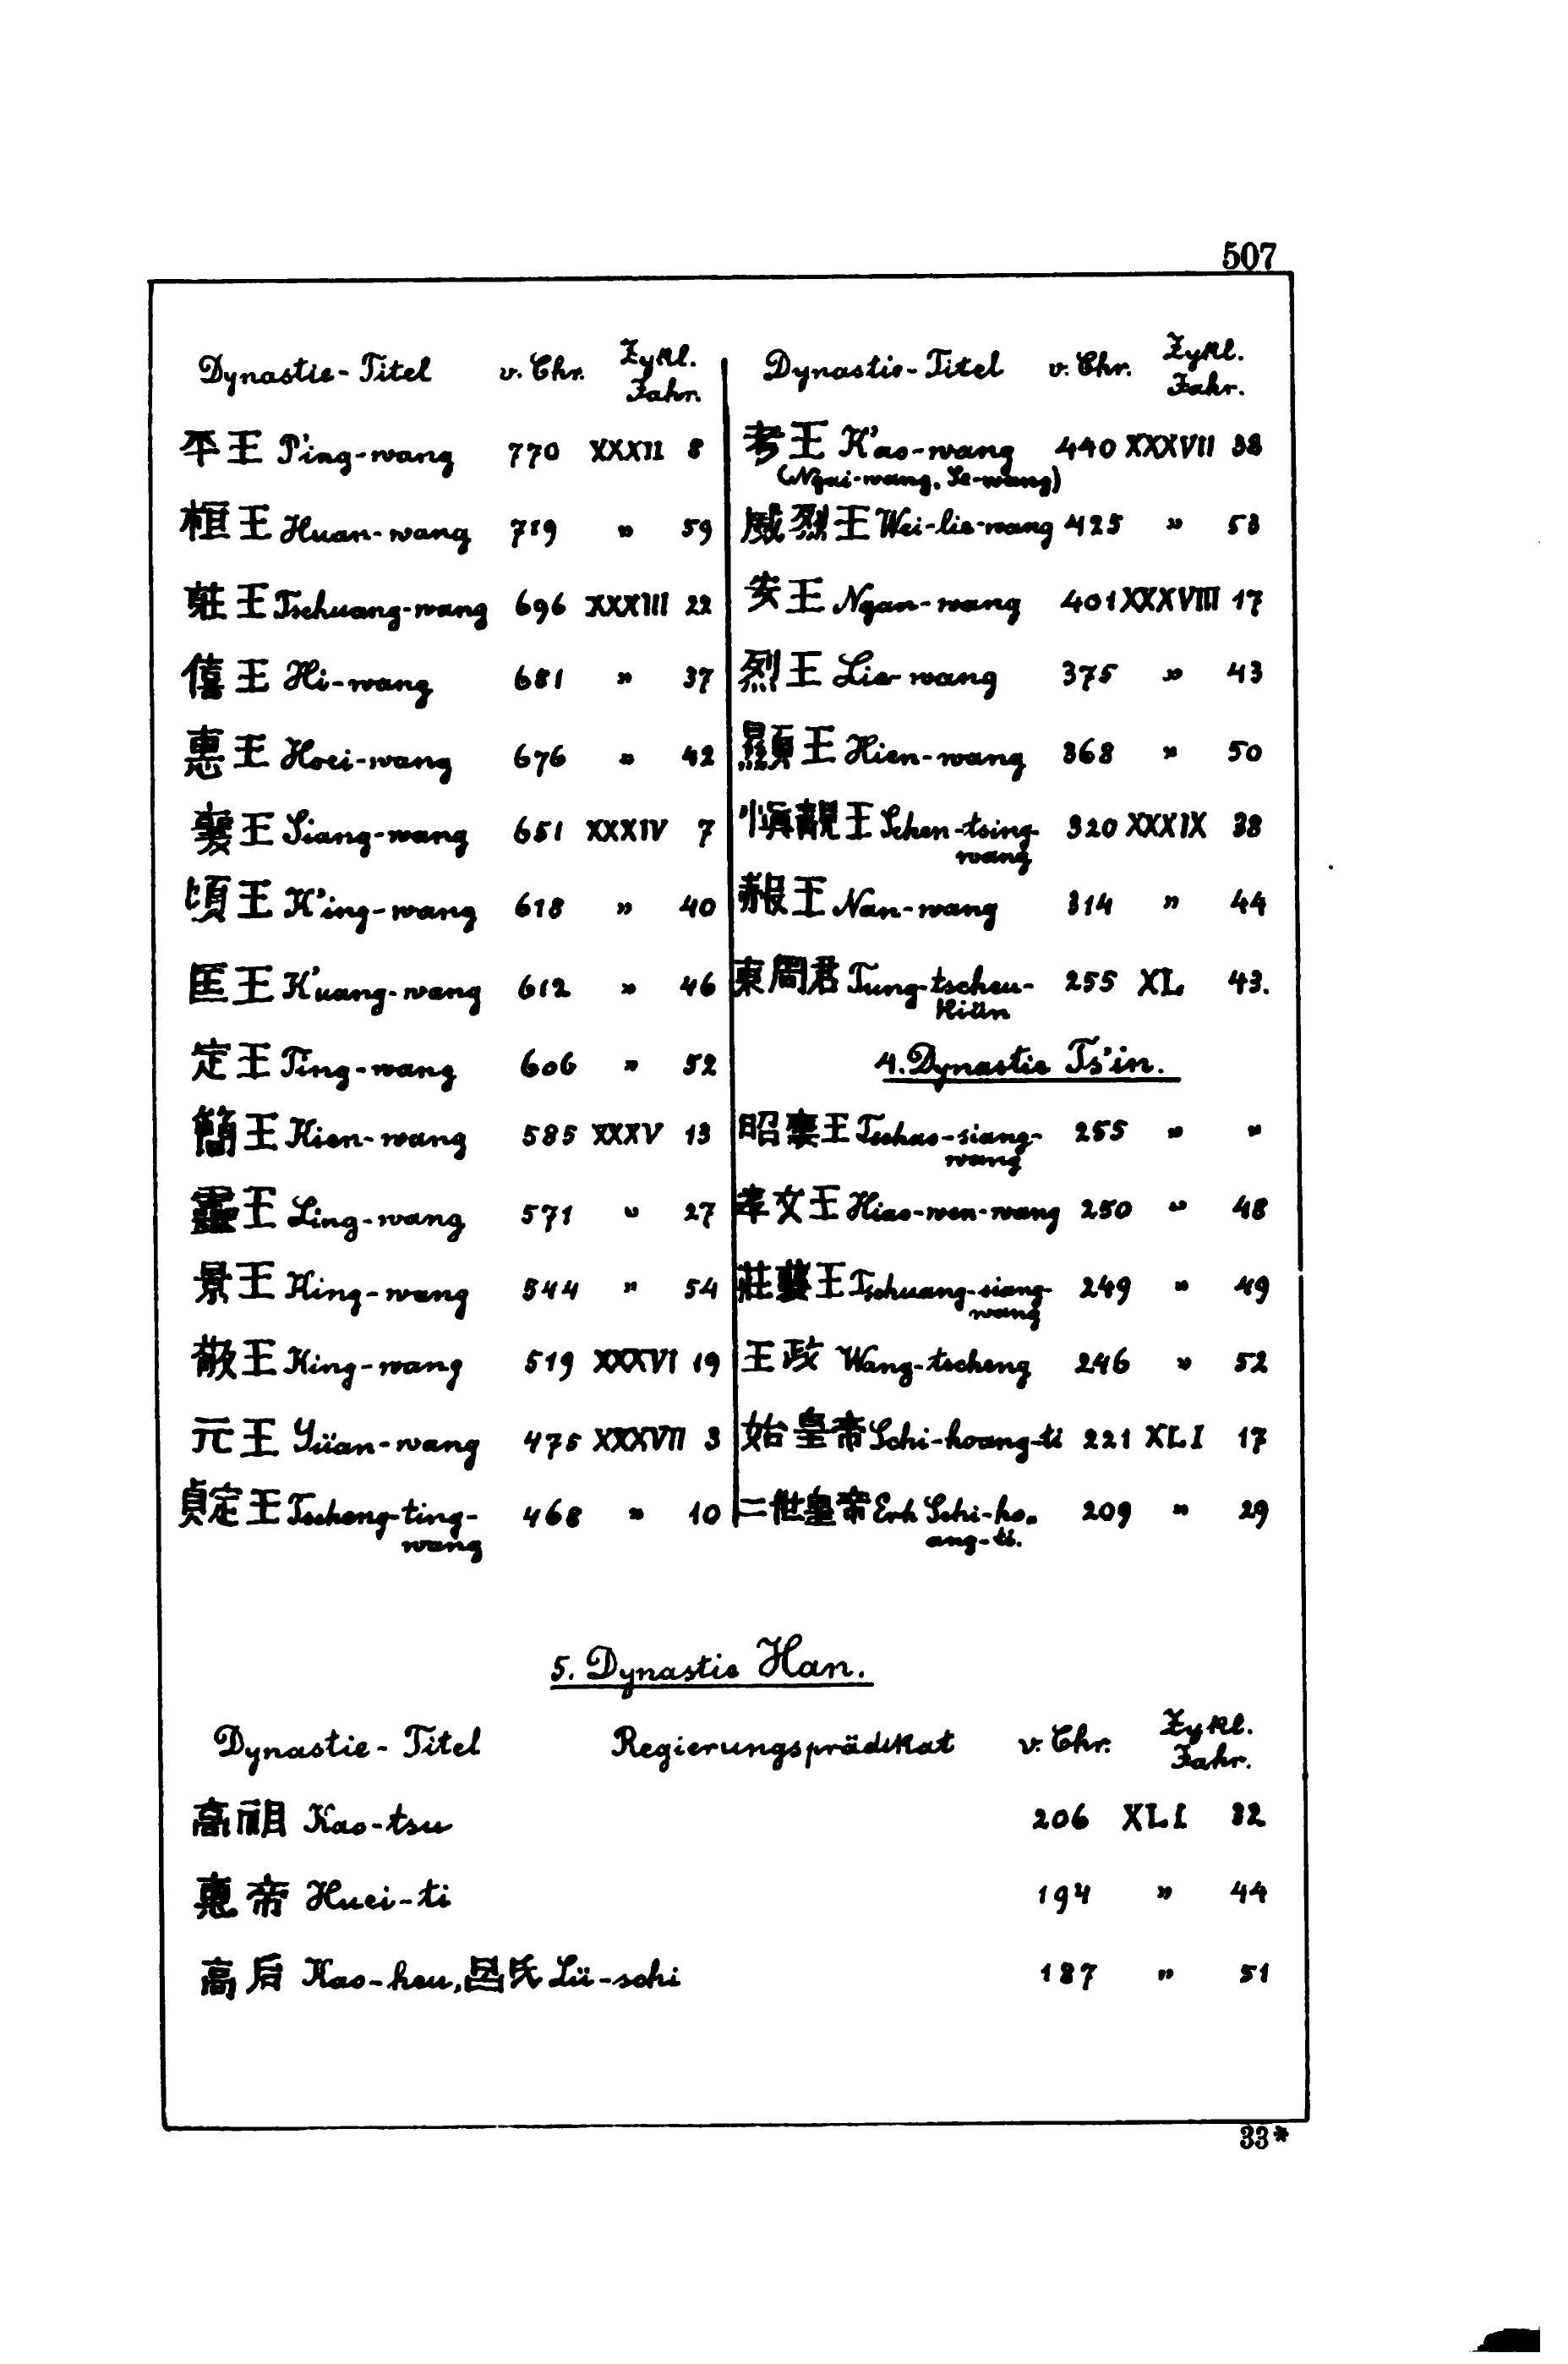 507
Dynastie-Titel v. Chr. Zykl. Jahr.
平王 P'ing-wang 770 XXXII 8
桓王 Huan-wang 719 » 59
莊王 Tschuang-wang 696 XXXIII 22
僖王 Hi-wang 681 » 37
惠王 Hoei-wang 676 » 42
襄王 Siang-wang 651 XXXIV 7
頃王 K'ing-wang 618 » 40
匡王 K'uang-wang 612 » 46
定王 Ting-wang 606 » 52
簡王 Kien-wang 585 XXXV 13
靈王 Ling-wang 571 » 27
景王 King-wang 544 » 54
敬王 King-wang 519 XXXVI 19
元王 Yüan-wang 475 XXXVII 3
貞定王 Tscheng-ting-
wang 468 » 10
Dynastie-Titel v. Chr. Zykl. Jahr.
考王 K'ao-wang 440 XXXVII 38
(Ngai-wang, Se-wang)
威烈王 Wei-lie-wang 425 » 53
安王 Ngan-wang 401 XXXVIII 17
烈王 Lie-wang 375 » 43
顯王 Hien-wang 368 » 50
慎靚王 Schen-tsing-
wang 320 XXXIX 38
赧王 Nan-wang 314 » 44
東周君 Tung-tscheu-
kiün 255 XL 43.
4. Dynastie Ts'in.
昭襄王 Tschao-siang-
wang 255 » »
孝文王 Hiao-wen-wang 250 » 48
莊襄王 Tschuang-siang-
wang 249 » 49
王政 Wang-tscheng 246 » 52
始皇帝 Schi-hoang-ti 221 XLI 17
二世皇帝 Erh Schi-ho-
ang-ti. 209 » 29
5. Dynastie Han.
Dynastie-Titel Regierungsprädikat v. Chr. Zykl. Jahr.
高祖 Kao-tsu 206 XLI 32
惠帝 Huei-ti 194 » 44
高后 Kao-heu, 呂氏 Lü-schi 187 » 51
33*